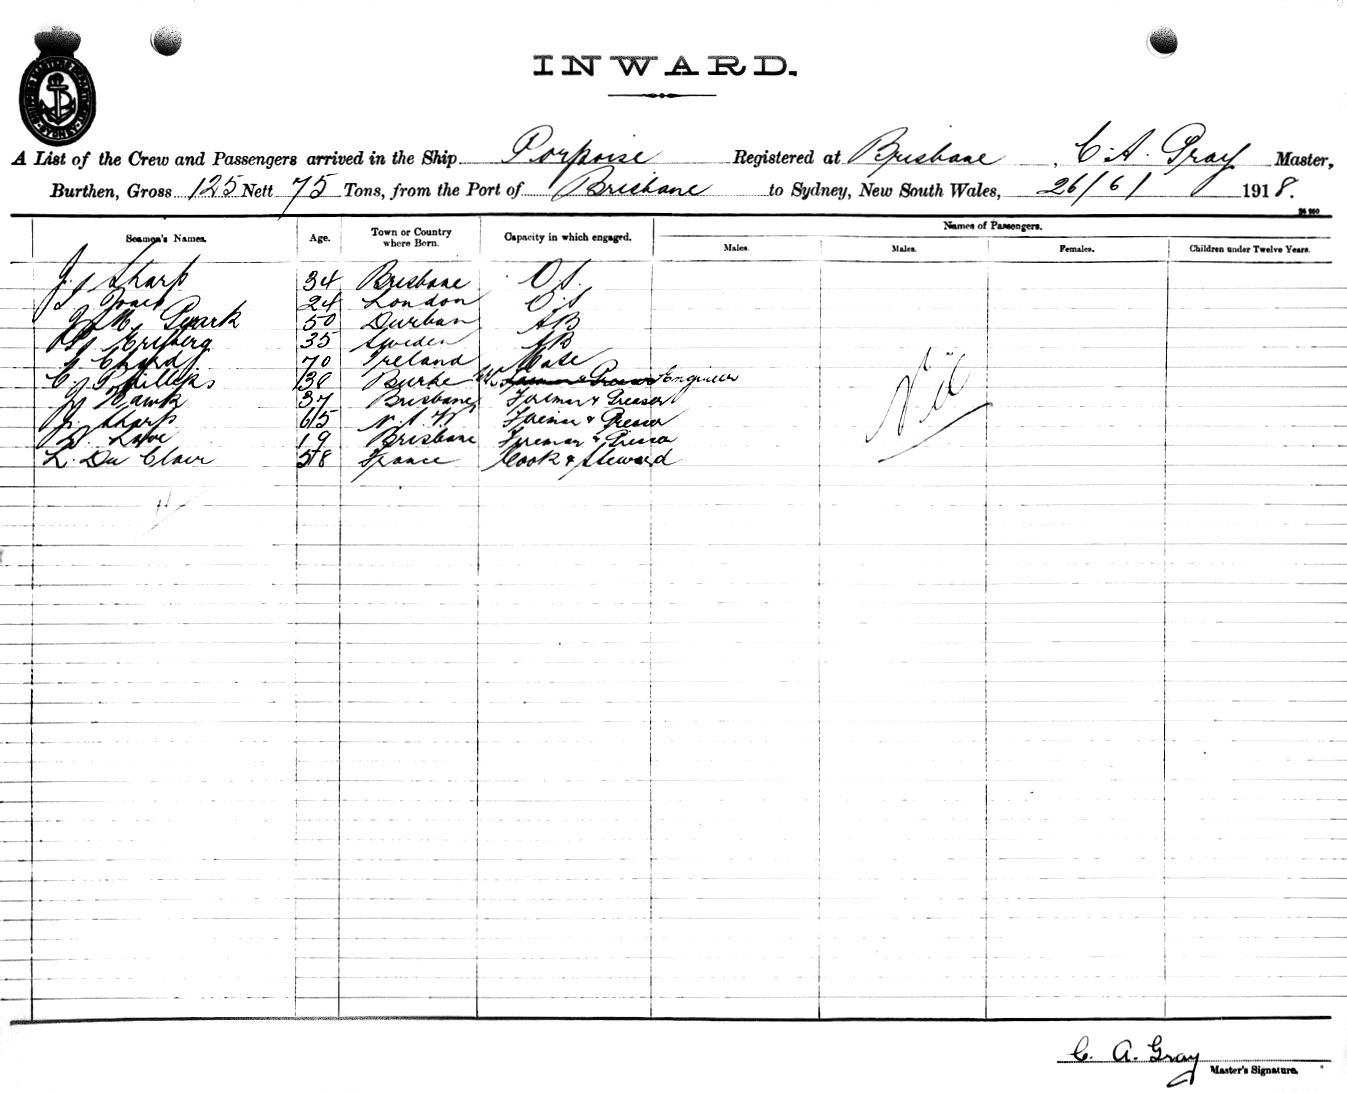 INWARD.
A List of the Crew and Passengers arrived in the Ship Porpoise Registered at Brisbane, C. A. Gray Master,
Burthen, Gross 125 Nett 75 Tons, from the Port of Brisbane to Sydney, New South Wales, 26/6/ 1918.
Names of Passengers.
Seamen's Names. Age. Town or Country where Born. Capacity in which engaged. Males. Males. Females. Children under Twelve Years.
J. Sharp 34 Brisbane O.S.
24 London O.S
50 Durban AB
35 Sweden AB
70 Ireland Mate
C. Phillips 30 Burke Engineer
Hawk 37 Brisbane Fireman & Greaser
J. Sharp 65 N.S.W Fireman & Greaser
Love 19 Brisbane Fireman & Greaser
L. Du Clair 58 France Cook & Steward
Nil
C. A. Gray
Master's Signature.